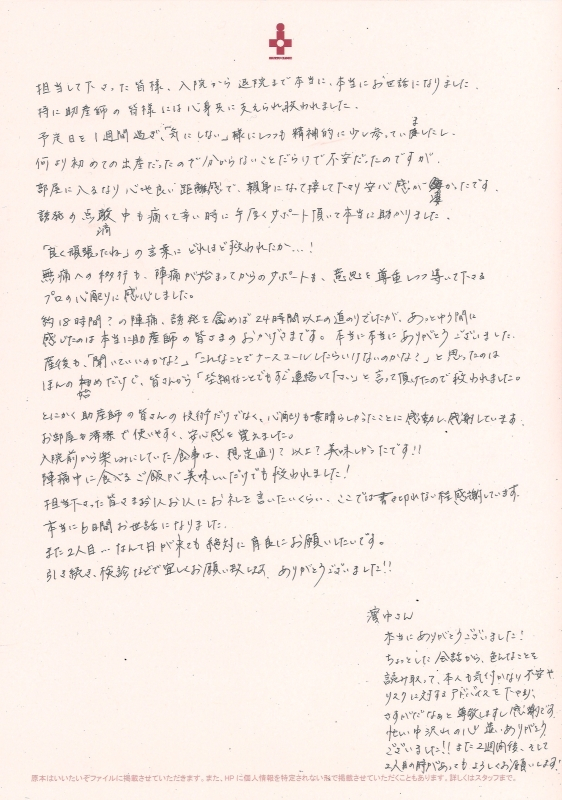 担当して下さった皆様、入院から退院まで本当に、本当にお世話になりました。
特に助産師の皆様には心身共に支えられ救われました。
予定日を1週間過ぎ、「気にしない」様にしつつも精神的に少し参っていましたし、
何より初めての出産だったので分からないことだらけで不安だったのですが、
部屋に入るなり心地良い距離感で、親身になって接して下さり安心感が凄かったです。
誘発の点滴中も痛くて辛い時に手厚くサポート頂いて本当に助かりました。
「良く頑張ったね」の言葉にどれほど救われたか…!
無痛への移行も、陣痛が始まってからのサポートも、意思を尊重しつつ導いて下さる
プロの心配りに感心しました。
約18時間?の陣痛、誘発を含めば24時間以上の道のりでしたが、あっという間に
感じたのは本当に助産師の皆さまのおかげさまです。本当に本当にありがとうございました。
産後も、「聞いていいのかな?」「これなことでナースコールしたらいけないのかな?」と思ったのは
ほんの始めだけで、皆さんから「些細なことでもすぐ連絡して下さい」と言って頂けたので救われました。
とにかく助産師の皆さんの技術だけでなく、心配りも素晴らしかったことに感動し、感謝しています。
お部屋も清潔で使いやすく、安心感を覚えました。
入院前から楽しみにしていた食事は、想定通り?以上?美味しかったです!!
陣痛中に食べるご飯が美味しいだけでも救われました!
担当下さった皆さまお1人お1人にお礼を言いたいくらい、ここでは書き切れない程感謝しています。
本当に6日間お世話になりました。
また2人目…なんて日が来ても絶対に育良にお願いしたいです。
引き続き、検診などで宜しくお願い致します。ありがとうございました!!
濱中さん
本当にありがとうございました!
ちょっとした会話から、色んなことを
読み取って、本人も気付かない不安や
リスクに対するアドバイスを下さり、
さすがだなぁと尊敬しますし感謝です。
忙しい中沢山の心遣いありがとう
ございました!!また2週間後、そして
2人目の時があってもよろしくお願いします!
原本はいいたいぞファイルに掲載させていただきます。また、HPに個人情報を特定されない形で掲載させていただくこともあります。詳しくはスタッフまで。